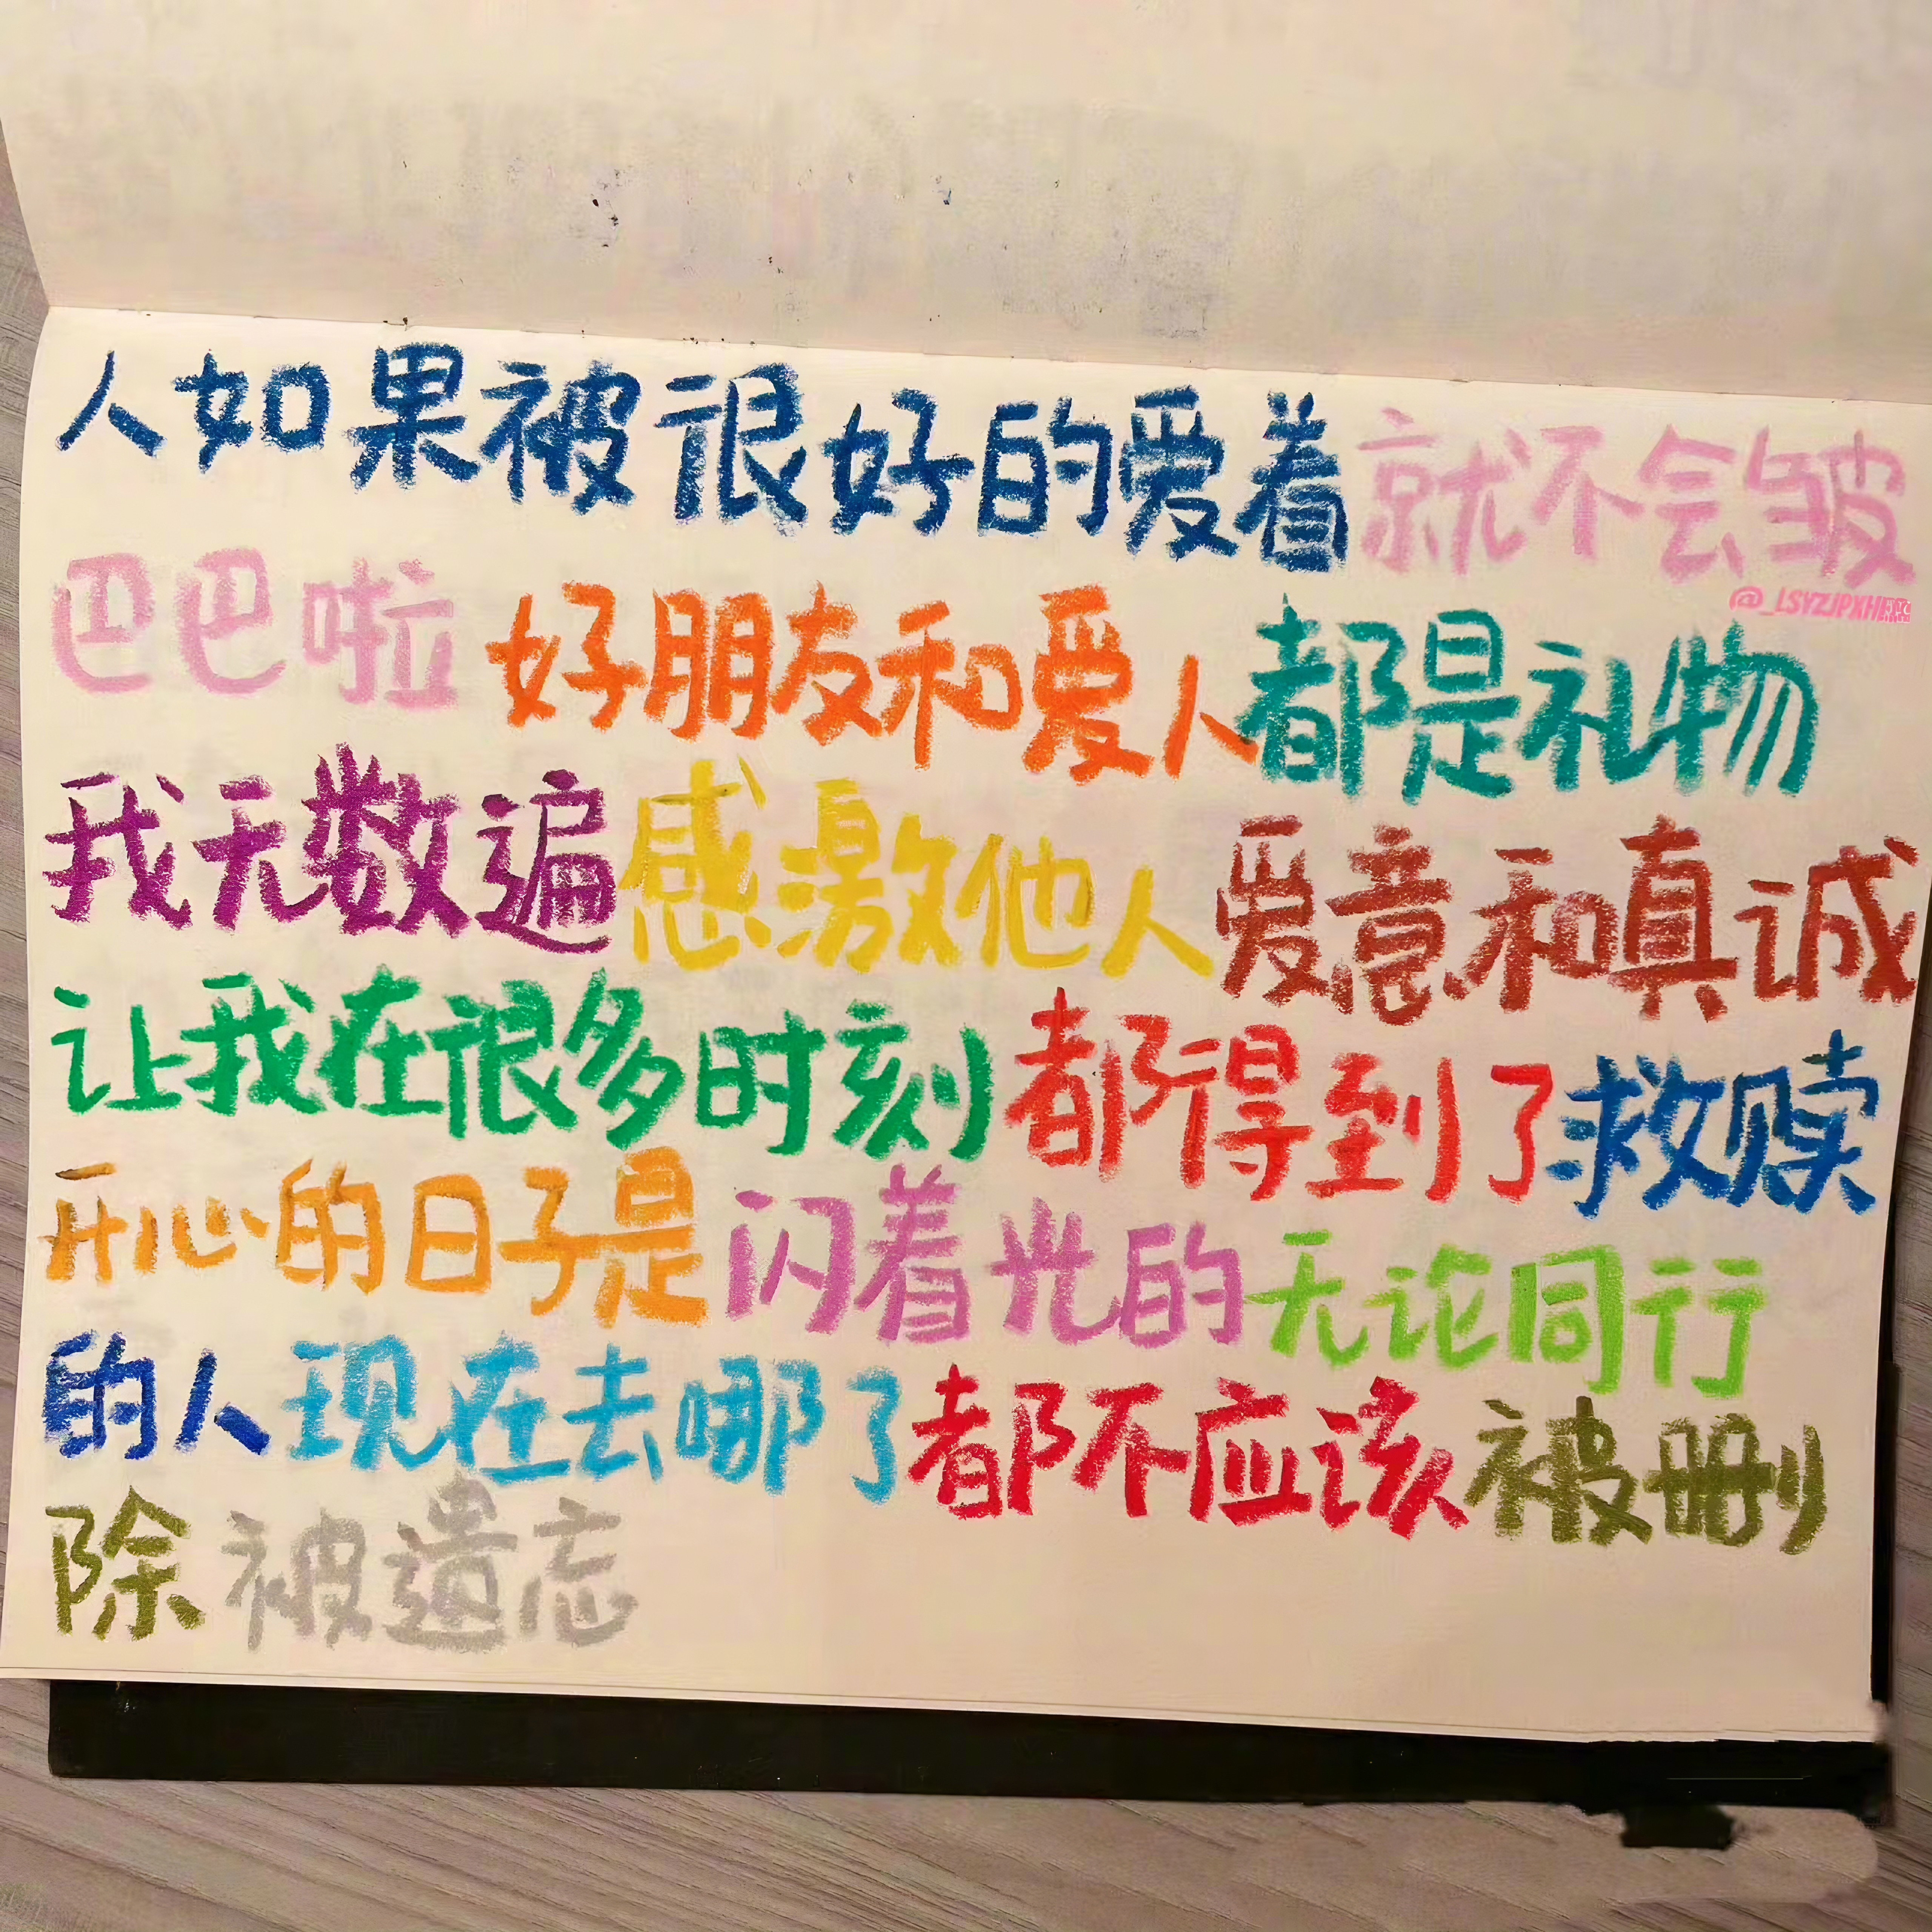 人如果被很好的爱着就不会皱
巴巴啦好朋友和爱人都是礼物
我无数遍感激他人爱意和真诚
让我在很多时刻都得到了救赎
开心的日子是闪着光的无论同行
的人现在去哪了都不应该被删
除被遗忘